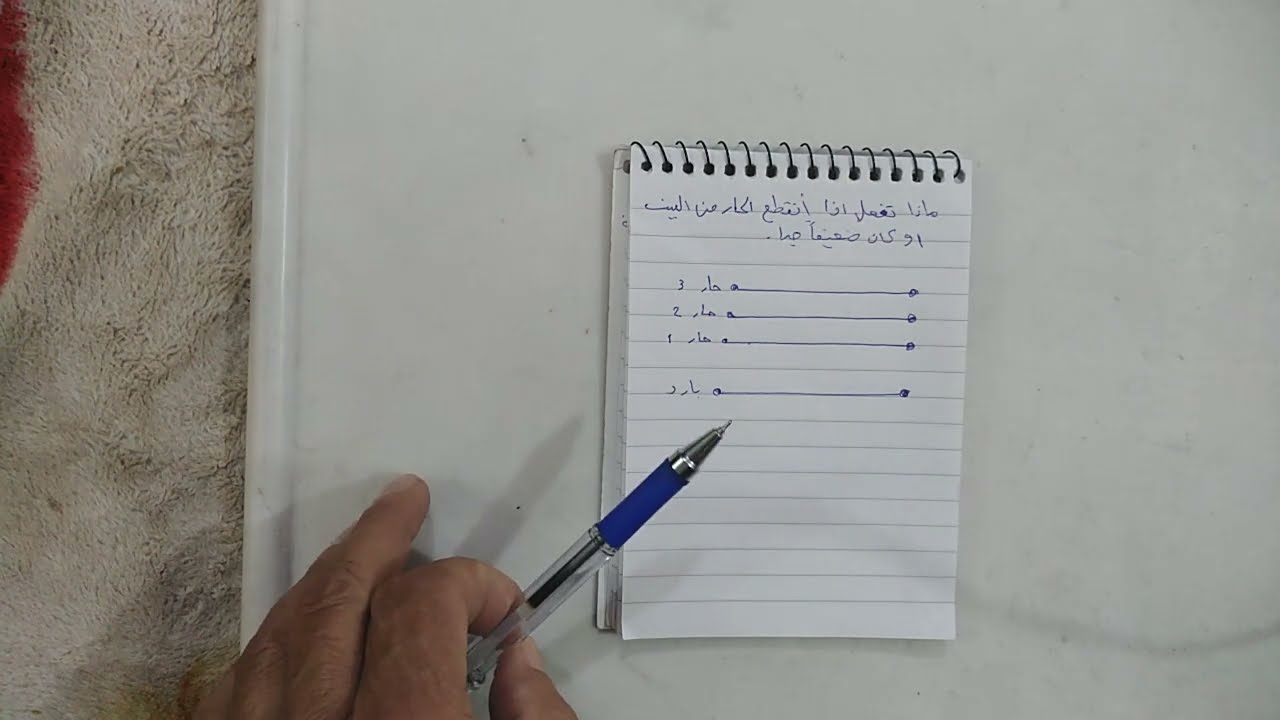 ماذا تفعل اذا أنقطع الحار من البيت
او كان ضعيفاً جدا.
حار 3
حار 2
حار 1
بارد